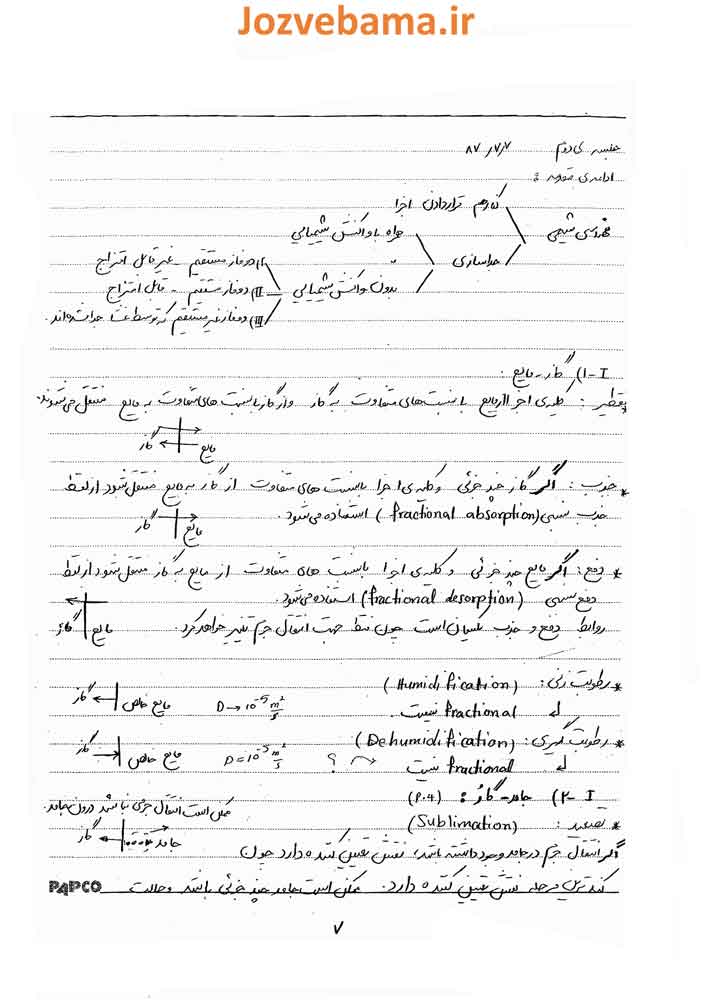 Jozvebama.ir
جلسه ی دوم ۸۷/۷/۷
ادامه ی مقدمه :
کنار هم قرار دادن اجزا
مهندسی شیمی
همراه با واکنش شیمیایی
جداسازی
بدون واکنش شیمیایی
I) دو فاز مستقیم - غیر قابل امتزاج
II) دو فاز مستقیم - قابل امتزاج
III) دو فاز غیر مستقیم که توسط غشا جدا شده اند.
I-1) گاز - مایع :
* تقطیر : کلیه ی اجزا از مایع با نسبت های متفاوت به گاز و از گاز با نسبت های متفاوت به مایع منتقل می شوند.
گاز مایع
* جذب : اگر گاز چند جزئی و کلیه ی اجزا با نسبت های متفاوت از گاز به مایع منتقل شود از لفظ
جذب نسبی (fractional absorption) استفاده می شود.
گاز مایع
* دفع : اگر مایع چند جزئی و کلیه ی اجزا با نسبت های متفاوت از مایع به گاز منتقل شود از لفظ
دفع نسبی (fractional desorption) استفاده می شود.
گاز مایع
روابط دفع و جذب یکسان است چون فقط جهت انتقال جرم تغییر خواهد کرد.
* رطوبت زنی : (Humidification)
fractional نیست.
D → 10⁻⁵ m²/s
مایع خالص گاز
* رطوبت گیری : (Dehumidification)
fractional نیست
؟
D = 10⁻⁵ m²/s
مایع خالص گاز
I-2) جامد - گاز : (P.4)
* تصعید : (Sublimation)
ممکن است انتقال جرمی نباشد درون جامد.
جامد گاز
اگر انتقال جرم در جامد وجود داشته باشد، نقش تعیین کننده دارد چون
کندترین مرحله نقش تعیین کننده دارد. ممکن است جامد چند جزئی باشد و حالت
PAPCO
۷